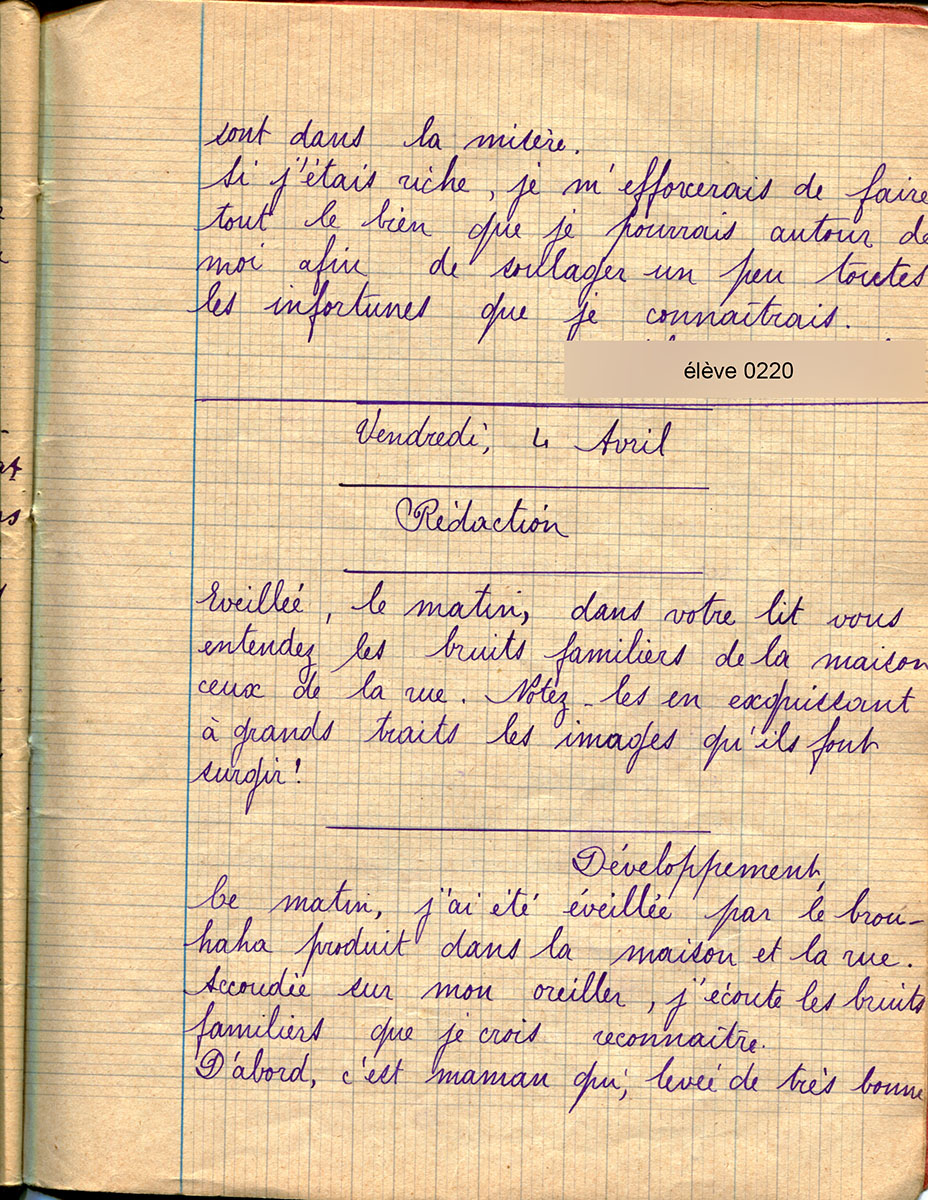 sont dans la misère.
Si j'étais riche, je m'efforcerais de faire
tout le bien que je pourrais autour de
moi afin de soulager un peu toutes
les infortunes que je connaîtrais.
élève 0220
Vendredi, 4 Avril
Rédaction
Eveillée, le matin, dans votre lit vous
entendez les bruits familiers de la maison
ceux de la rue. Notez-les en exquissant
à grands traits les images qu'ils font
surgir!
Développement
Ce matin, j'ai été éveillée par le brou-
haha produit dans la maison et la rue.
Accoudée sur mon oreiller, j'écoute les bruits
familiers que je crois reconnaître.
D'abord, c'est maman qui, levée de très bonne